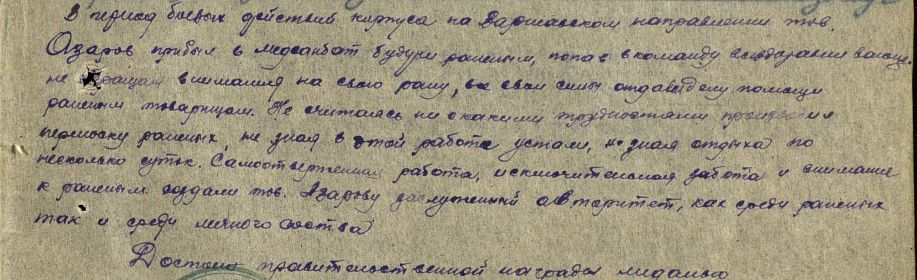 В период боевых действий корпуса на Варшавском направлении тов.
Азаров прибыл в медсанбат будучи раненым, попав в команду выздоравливающи.
не обращая внимания на свою рану, все свои силы отдавал делу помощи
раненым товарищам. Не считаясь ни с какими трудностями производил
переноску раненых, не зная в этой работе устали, не зная отдыха по
несколько суток. Самоотверженная работа, исключительная забота и внимание
к раненым создали тов. Азарову заслуженный авторитет, как среди раненых
так и среди личного состава
Достоин правительственной награды медалью